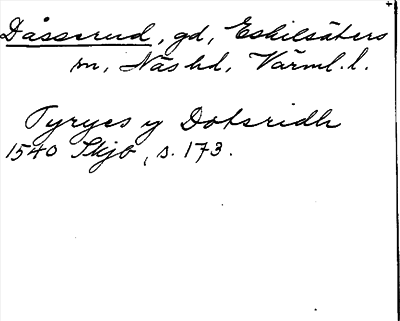 Dåsserud, gd, Eskilsäters
sn, Näs hd, Värml. l.
Tyryes y Dotsridh
1540 Skjb, s. 173.